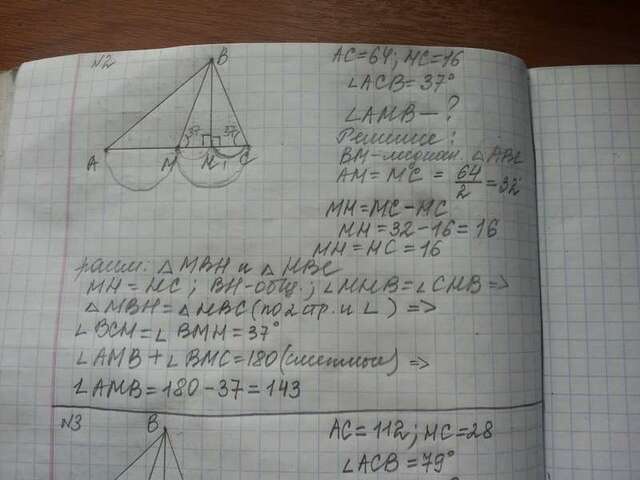 N2
B
AC=64; HC=16
∠ACB=37°
∠AMB—?
Решение:
BM-медиан. △ABC
AM=MC=64/2=32
MH=MC-HC
MH=32-16=16
MH=HC=16
37 37
A M H C
рассм: △MBH и △HBC
MH=HC; BH-общ.; ∠MHB=∠CHB=>
△MBH=△HBC(по 2 стр. и ∠) =>
∠BCH=∠BMH=37°
∠AMB+∠BMC=180(смежные) =>
∠AMB=180-37=143
N3
B
AC=112; HC=28
∠ACB=79°